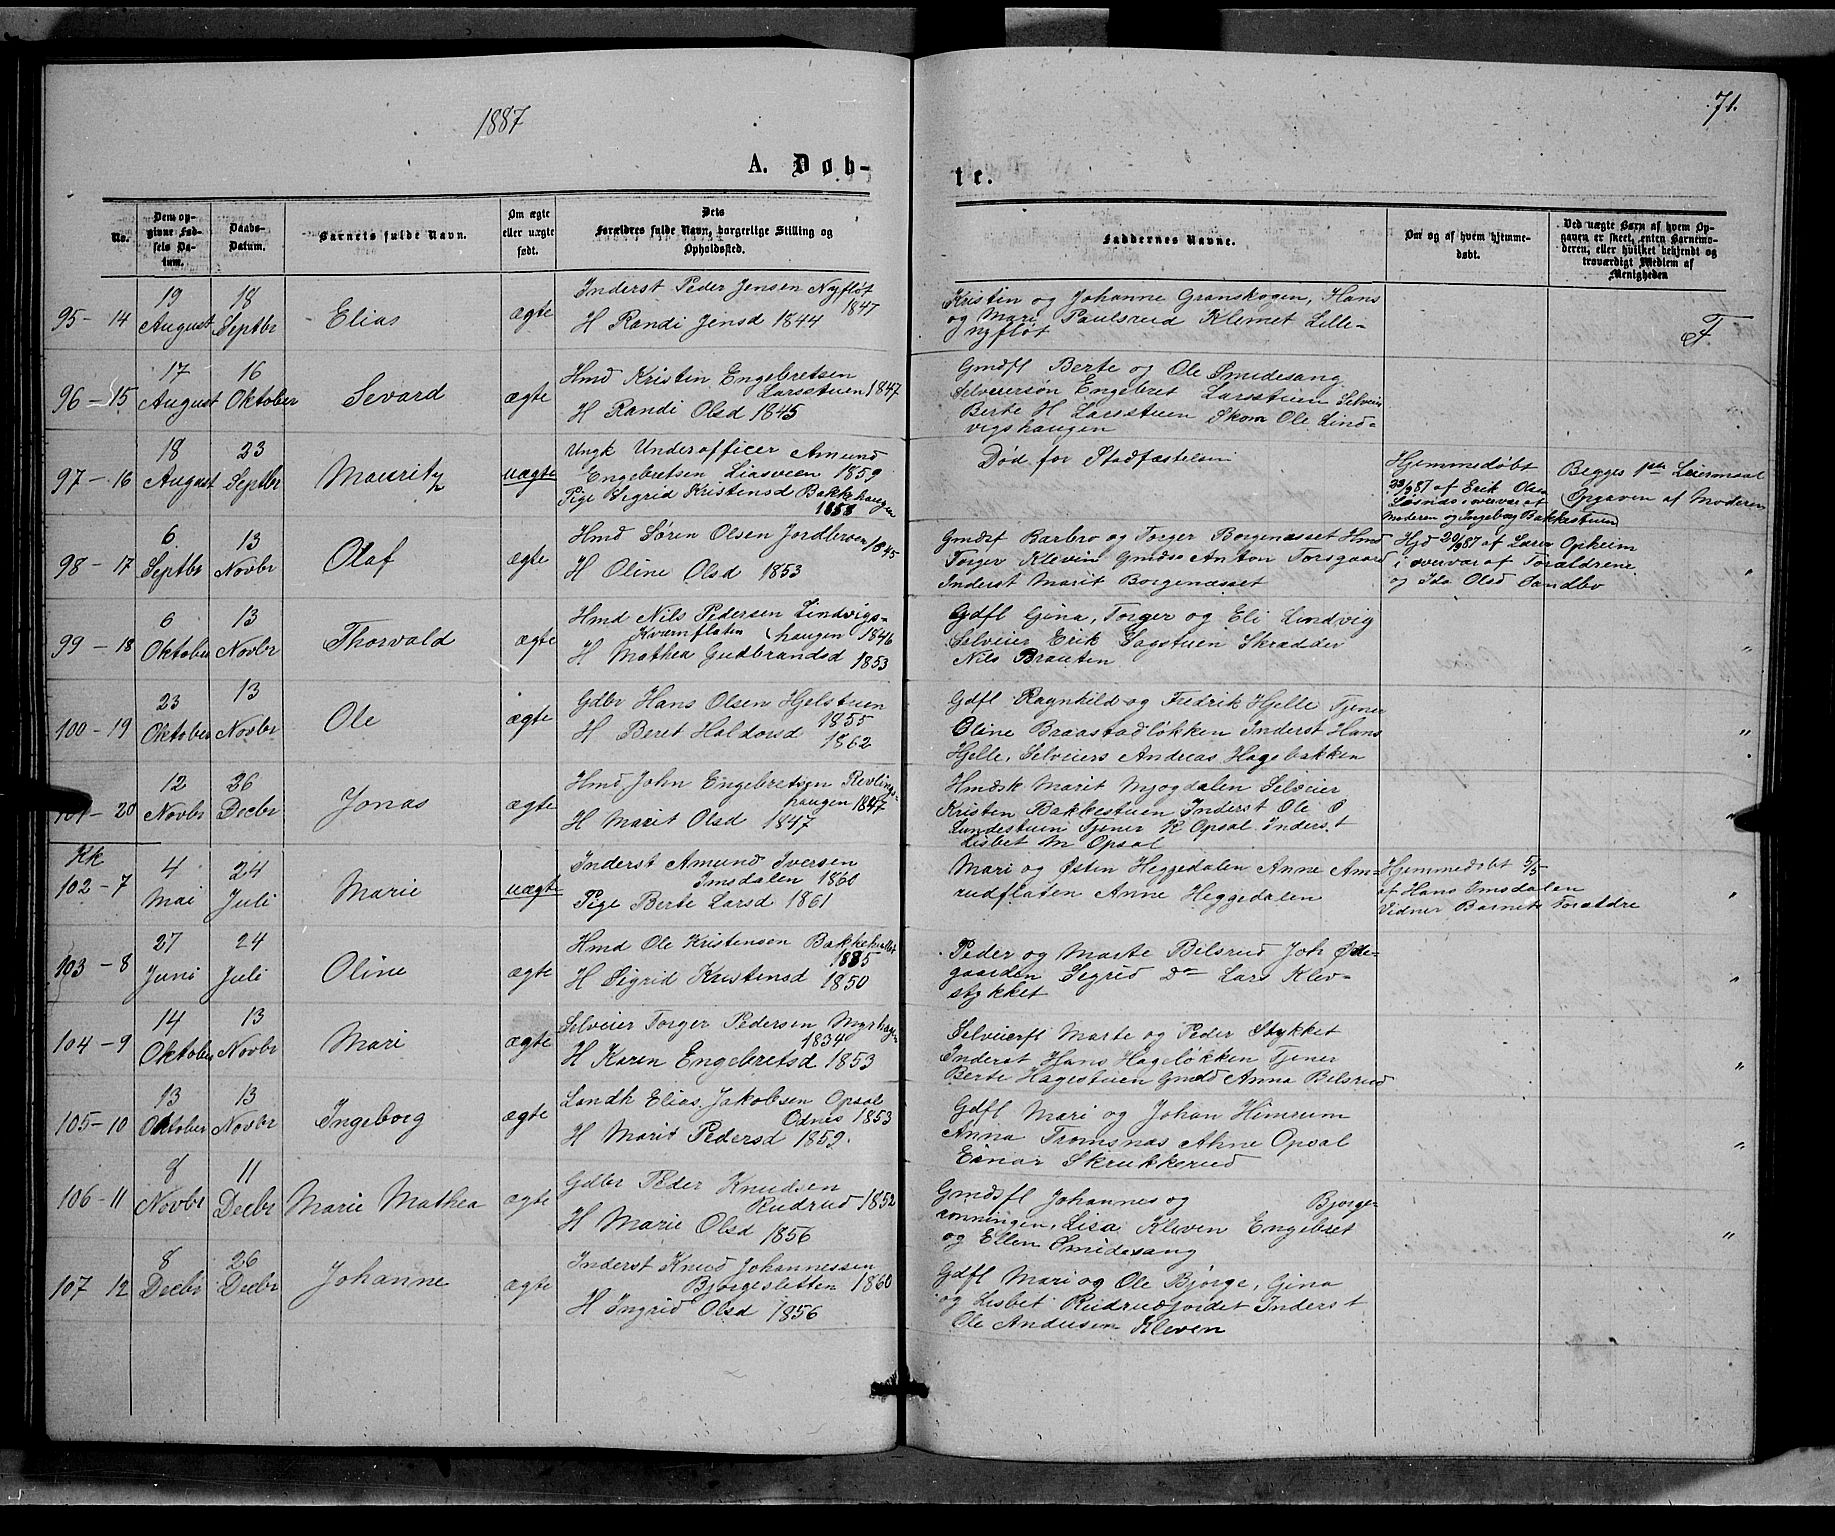 1887
71.
A. Døb-
te.
No.
Den op-
givne Fød-
sels Da-
tum.
Daabs-
Datum.
Barnets fulde Navn.
Om ægte
eller uægte
født.
Dets
Forældres fulde Navn, borgerlige Stilling og
Opholdssted.
Faddernes Navne.
Om og af hvem hjemme-
døbt.
Ved uægte Børn af hvem Op-
gaven er skeet, enten Barnemo-
deren, eller hvilket bekjendt og
troværdigt Medlem af
Menigheden
95-14
19
August
18
Septbr
Elias
ægte
Inderst Peder Jensen Nyfløt
1847
H Randi Jensd 1844
Kristin og Johanne Granskogen, Hans
og Mari Paulsrud Klemet Lille-
nyfløt
F
96-15
17
August
16
Oktober
Sevard
ægte
Hmd Kristin Engebretsen
Larsstuen 1847
H Randi Olsd 1845
Gmdfl Berte og Ole Smedesang
Selveiersøn Engebret Larsstuen Selveier
Berte H Larsstuen Skom Ole Lind-
vigshaugen
97-16
18
August
23
Septbr
Mauritz
uægte
Ungk Underofficer Amund
Engebretsen Liasveen 1859
Pige Sigrid Kristensd Bakkhaugen
1858
Død for Stadfæstelsen
Hjemmedøbt
23/987 af Erik Olsen
i overvær af
Moderen og Ingeborg Bakkestuen
Begges 1ste Leiermaal
Opgaven af Moderen
98-17
6
Septbr
13
Novbr
Olaf
ægte
Hmd Søren Olsen Jordbroen 1845
H Oline Olsd 1853
Gmdsf Barbro og Torger Borgenasset Hmd
Torger Klevin Gmds Anton Torsgaard
Inderst Marit Borgenæsset
Hjd 20/987 af Lars Opheim
i overvær af Forældrene
og Ida Olsd Sandbo
"
99-18
6
Oktober
13
Novbr
Thorvald
ægte
Hmd Nils Pedersen Lindvigs-
Kvernflaten haugen 1846
H Mathea Gudbrandsd 1853
Gdfl Gina, Torger og Eli Lindvig
Selveier Erik Sagstuen Skrædder
Nils Brauten
"
100-19
23
Oktober
13
Novbr
Ole
ægte
Gdbr Hans Olsen Hjelstuen
1855
H Beret Haldorsd
1862
Gdfl Ragnhild og Fredrik Hjelle Tjener
Oline Braastadløkken Inderst Hans
Hjelle, Selveiers Andreas Hagebakken
"
101-20
12
Novbr
26
Decbr
Jonas
ægte
Hmd John Engebretsen Revlings-
haugen 1847
H Marit Olsd 1847
Hmdsk Marit Mjogdalen Selveier
Kristen Bakkestuen Inderst Ole O
Lundestuen Tjener K Opsal Inderst
Lisbet M Opsal
"
Kk
102-7
4
Mai
24
Juli
Marie
uægte
Inderst Amund Iversen
Imsdalen 1860
Pige Berte Larsd 1861
Mari og Østen Heggedalen Anne Am-
rudflaten Anne Heggedalen
Hjemmedøbt 5/5
af Hans Imsdalen
Vidner Barnets Forældre
"
103-8
27
Juni
24
Juli
Oline
ægte
Hmd Ole Kristensen
H Sigrid Kristensd 1850
Peder og Marte Bilsrud Joh Øde-
gaarden Sigrid Do Lars Klev-
stykket
"
104-9
14
Oktober
13
Novbr
Mari
ægte
Selveier Torger Pedersen Myrhagen
1834
H Karen Engebretsd 1853
Selveierfl Marte og Peder Stykket
Inderst Hans Hageløkken Tjener
Berte Hagestuen Gmdd Anna Bilsrud
"
105-10
13
Oktober
13
Novbr
Ingeborg
ægte
Landh Elias Jakobsen Opsal
Odnes 1853
H Marit Pedersd 1859.
Gdfl Mari og Johan Himrum
Anna Tromsnæs Ahne Opsal
Einar Skrukkerud
"
106-11
8
Novbr
11
Decbr
Marie Mathea
ægte
Gdbr Peder Knudsen
Rudrud 1852
H Marie Olsd 1856
Gmdsfl Johannes og Bjorge-
ronningen, Lisa Kleven Engebret
og Ellen Smidesang
"
107-12
8
Decbr
26
Decbr
Johanne
ægte
Inderst Knud Johannessen
Bjorgesletten 1860
H Ingrid Olsd 1856
Gdfl Mari og Ole Bjørge, Gina
og Lisbet Rudrudjordet Inderst
Ole Andersen Kleven